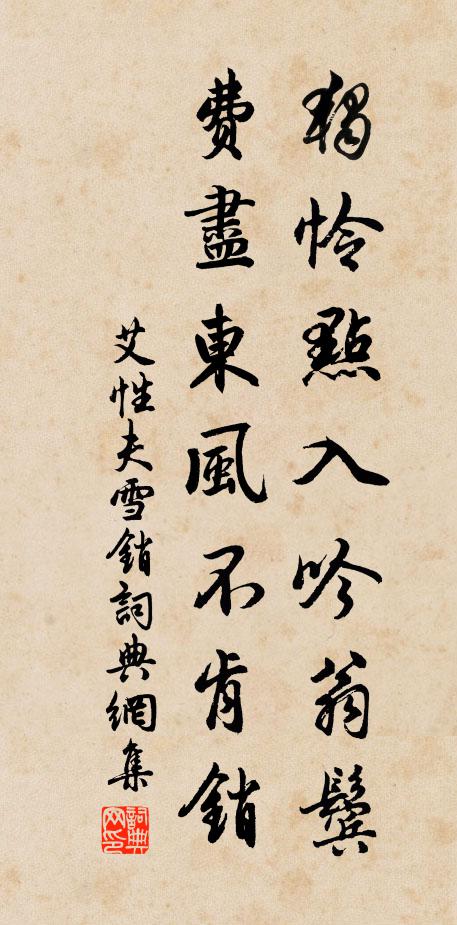 獨怜點入吟翁鬢
費盡東風不肯銷
艾性夫雪銷詞典網集
詞典网印